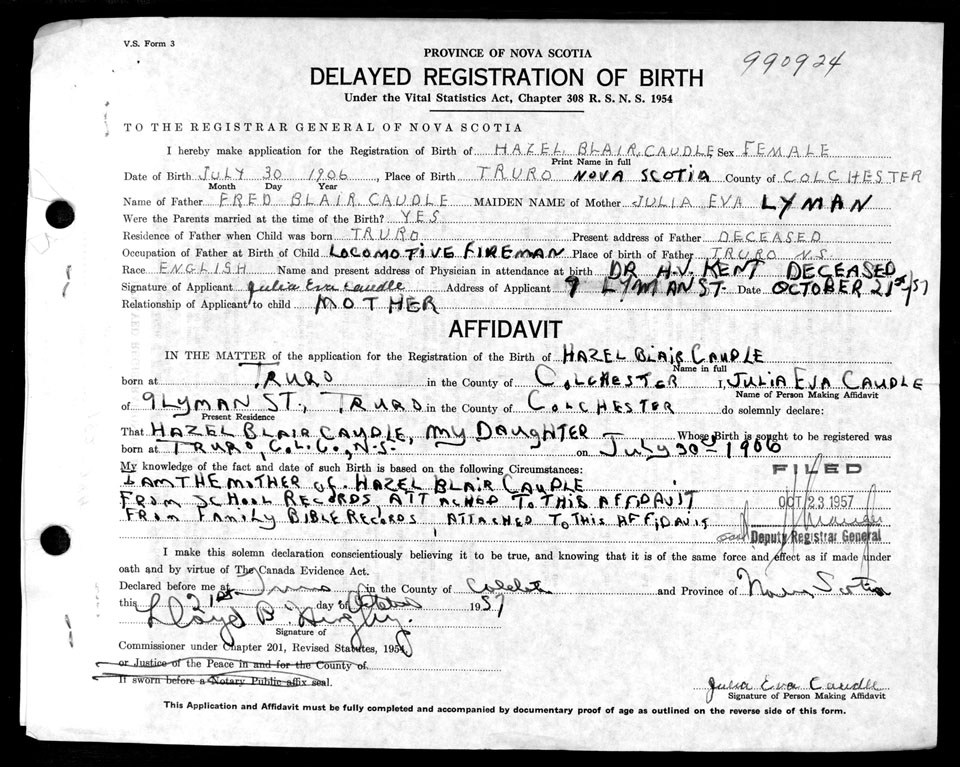 V.S. Form 3
990924
PROVINCE OF NOVA SCOTIA
DELAYED REGISTRATION OF BIRTH
Under the Vital Statistics Act, Chapter 308 R. S. N. S. 1954
TO THE REGISTRAR GENERAL OF NOVA SCOTIA
I hereby make application for the Registration of Birth of HAZEL BLAIR CAUDLE, Sex FEMALE
Print Name in full
Date of Birth JULY 30 1906, Place of Birth TRURO NOVA SCOTIA County of COLCHESTER
Month Day Year
Name of Father FRED BLAIR CAUDLE MAIDEN NAME of Mother JULIA EVA LYMAN
Were the Parents married at the time of the Birth? YES
Residence of Father when Child was born TRURO Present address of Father DECEASED
Occupation of Father at Birth of Child LOCOMOTIVE FIREMAN Place of birth of Father TRURO N.S.
Race ENGLISH Name and present address of Physician in attendance at birth DR H.V. KENT DECEASED
Signature of Applicant Julia Eva Caudle Address of Applicant 9 LYMAN ST. Date OCTOBER 21st/57
Relationship of Applicant to child MOTHER
AFFIDAVIT
IN THE MATTER of the application for the Registration of the Birth of HAZEL BLAIR CAUDLE
Name in full
born at TRURO in the County of COLCHESTER I, JULIA EVA CAUDLE
Name of Person Making Affidavit
of 9 LYMAN ST., TRURO in the County of COLCHESTER do solemnly declare:
Present Residence
That HAZEL BLAIR CAUDLE, MY DAUGHTER Whose Birth is sought to be registered was
born at TRURO, COL. CO., N.S. on July 30th 1906
My knowledge of the fact and date of such Birth is based on the following Circumstances:
I AM THE MOTHER OF HAZEL BLAIR CAUDLE
FROM SCHOOL RECORDS ATTACHED TO THIS AFFIDAVIT
FROM FAMILY BIBLE RECORDS, ATTACHED TO THIS AFFIDAVIT
FILED
OCT 23 1957
Deputy Registrar General
I make this solemn declaration conscientiously believing it to be true, and knowing that it is of the same force and effect as if made under
oath and by virtue of The Canada Evidence Act.
Declared before me at Truro in the County of Colchester and Province of Nova Scotia
this 21st day of October 1957
Lloyd B.
Signature of
Commissioner under Chapter 201, Revised Statutes, 1954
or Justice of the Peace in and for the County of
If sworn before a Notary Public affix seal.
Julia Eva Caudle
Signature of Person Making Affidavit
This Application and Affidavit must be fully completed and accompanied by documentary proof of age as outlined on the reverse side of this form.